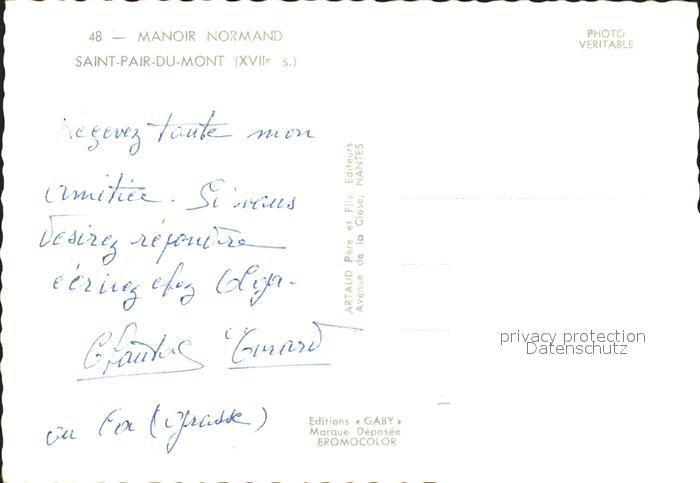 48 — MANOIR NORMAND
SAINT-PAIR-DU-MONT (XVIIe s.)
PHOTO
VERITABLE
Recevez toute mon
amitiée. Si vous
désirez répondre
écrivez chez Olga.
ou (Grasse)
ARTAUD Père et Fils, Editeurs
Avenue de la Close, NANTES
privacy protection
Datenschutz
Editions « GABY »
Marque Déposée
BROMOCOLOR